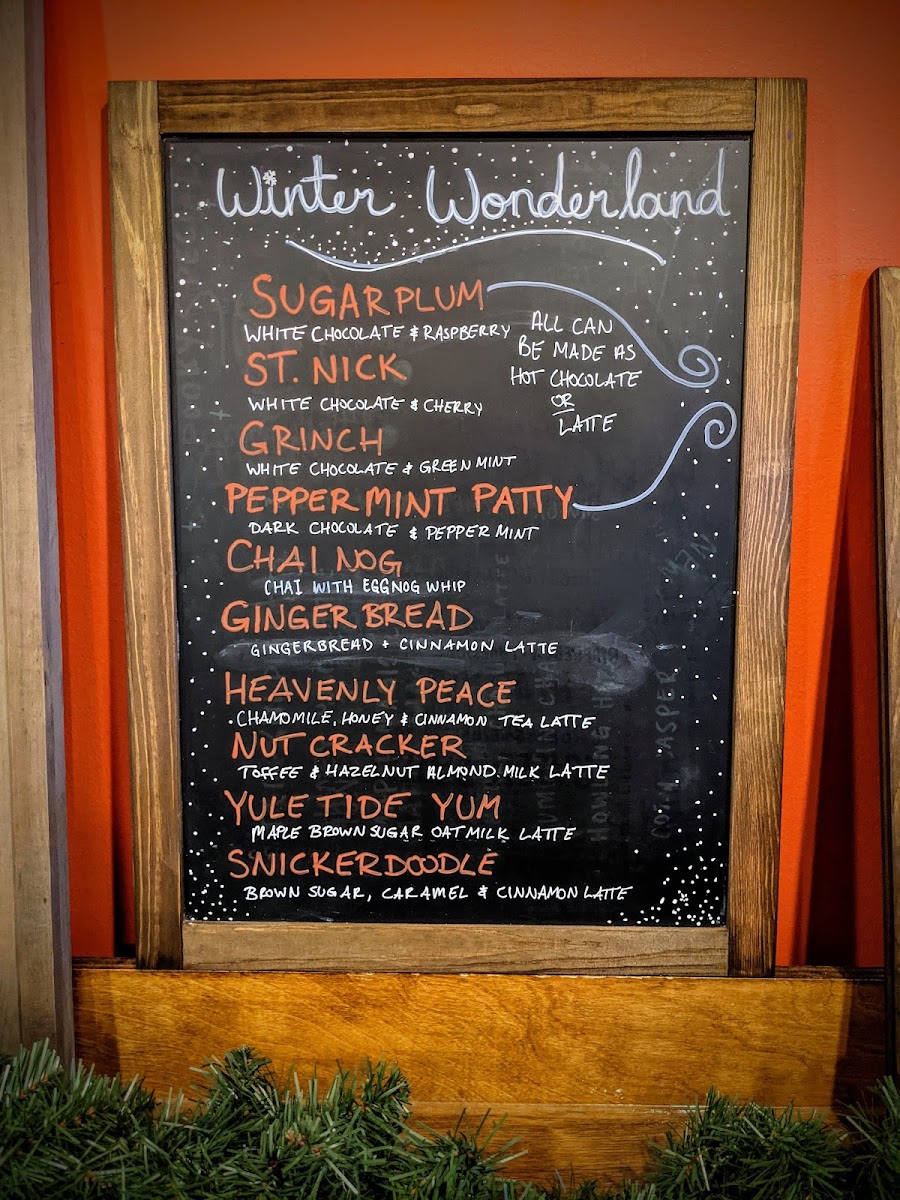 Winter Wonderland
SUGARPLUM
WHITE CHOCOLATE & RASPBERRY
ALL CAN
BE MADE AS
HOT CHOCOLATE
OR
LATTE
ST. NICK
WHITE CHOCOLATE & CHERRY
GRINCH
WHITE CHOCOLATE & GREEN MINT
PEPPERMINT PATTY
DARK CHOCOLATE & PEPPERMINT
CHAI NOG
CHAI WITH EGGNOG WHIP
GINGERBREAD
GINGERBREAD + CINNAMON LATTE
HEAVENLY PEACE
CHAMOMILE, HONEY & CINNAMON TEA LATTE
NUTCRACKER
TOFFEE & HAZELNUT ALMOND MILK LATTE
YULETIDE YUM
MAPLE BROWN SUGAR OATMILK LATTE
SNICKERDOODLE
BROWN SUGAR, CARAMEL & CINNAMON LATTE